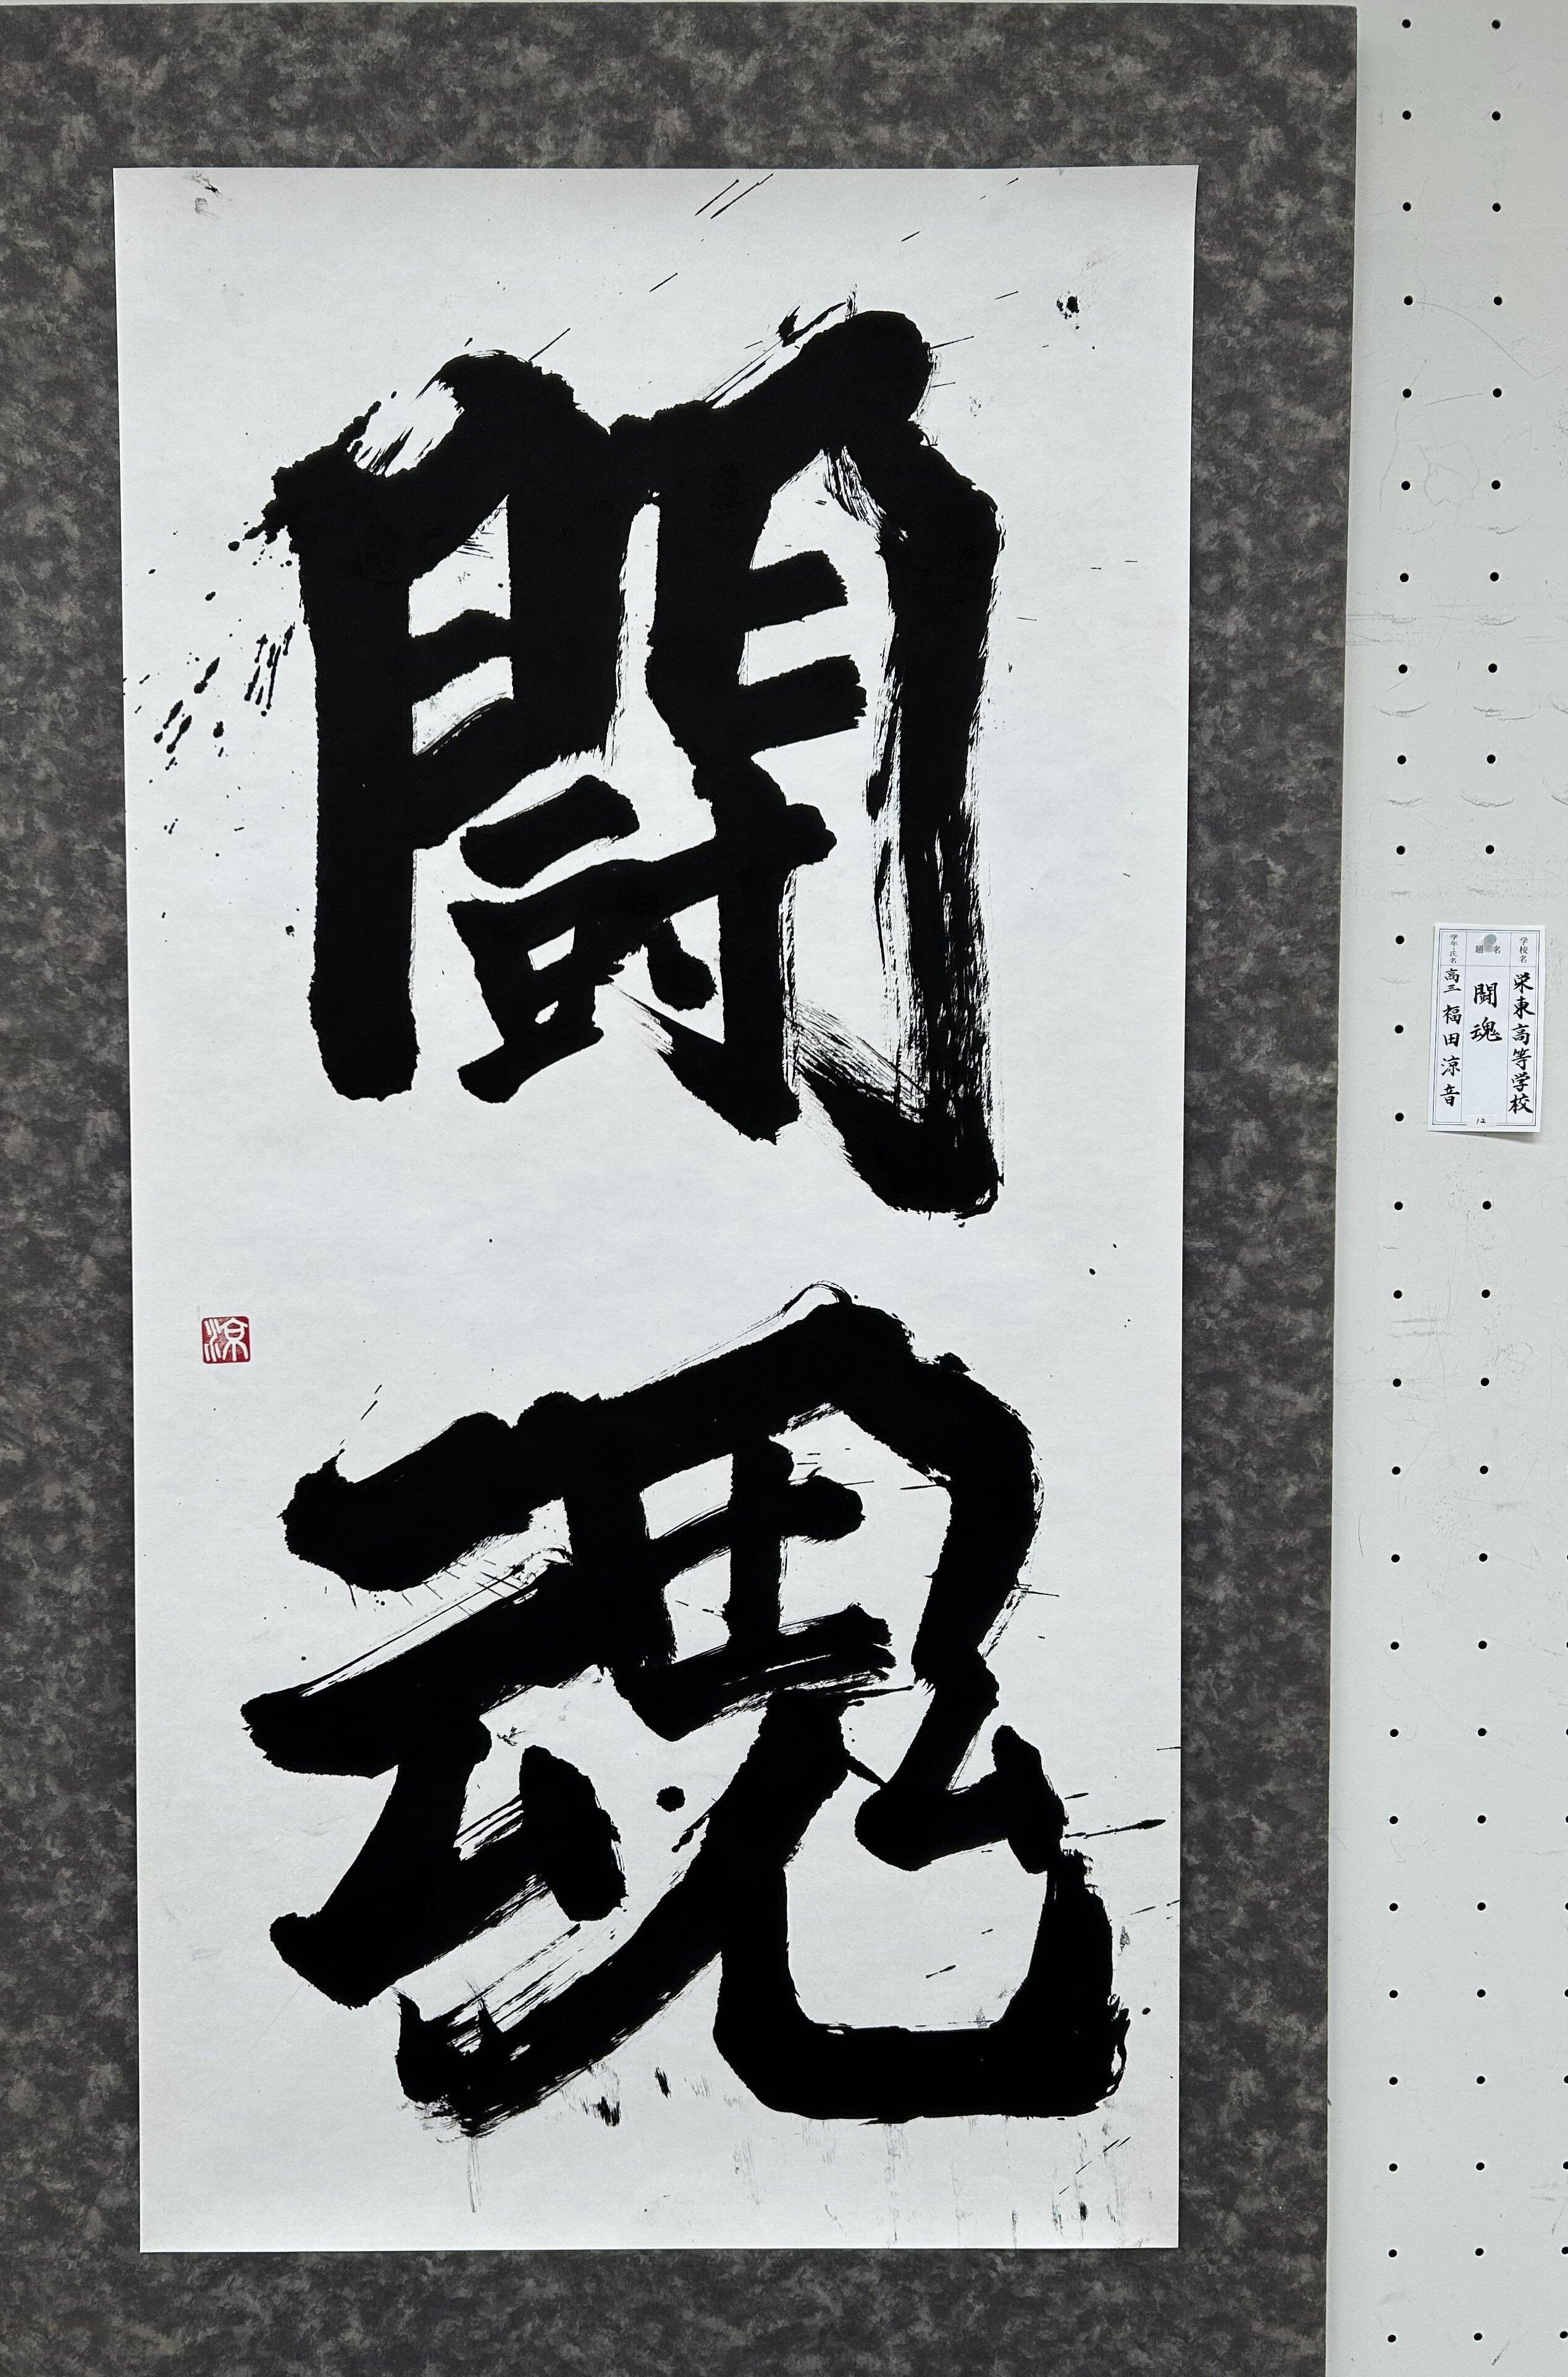 闘
魂
涼
学校名 栄東高等学校
題名 闘魂
学年・氏名 高三 福田涼音
12